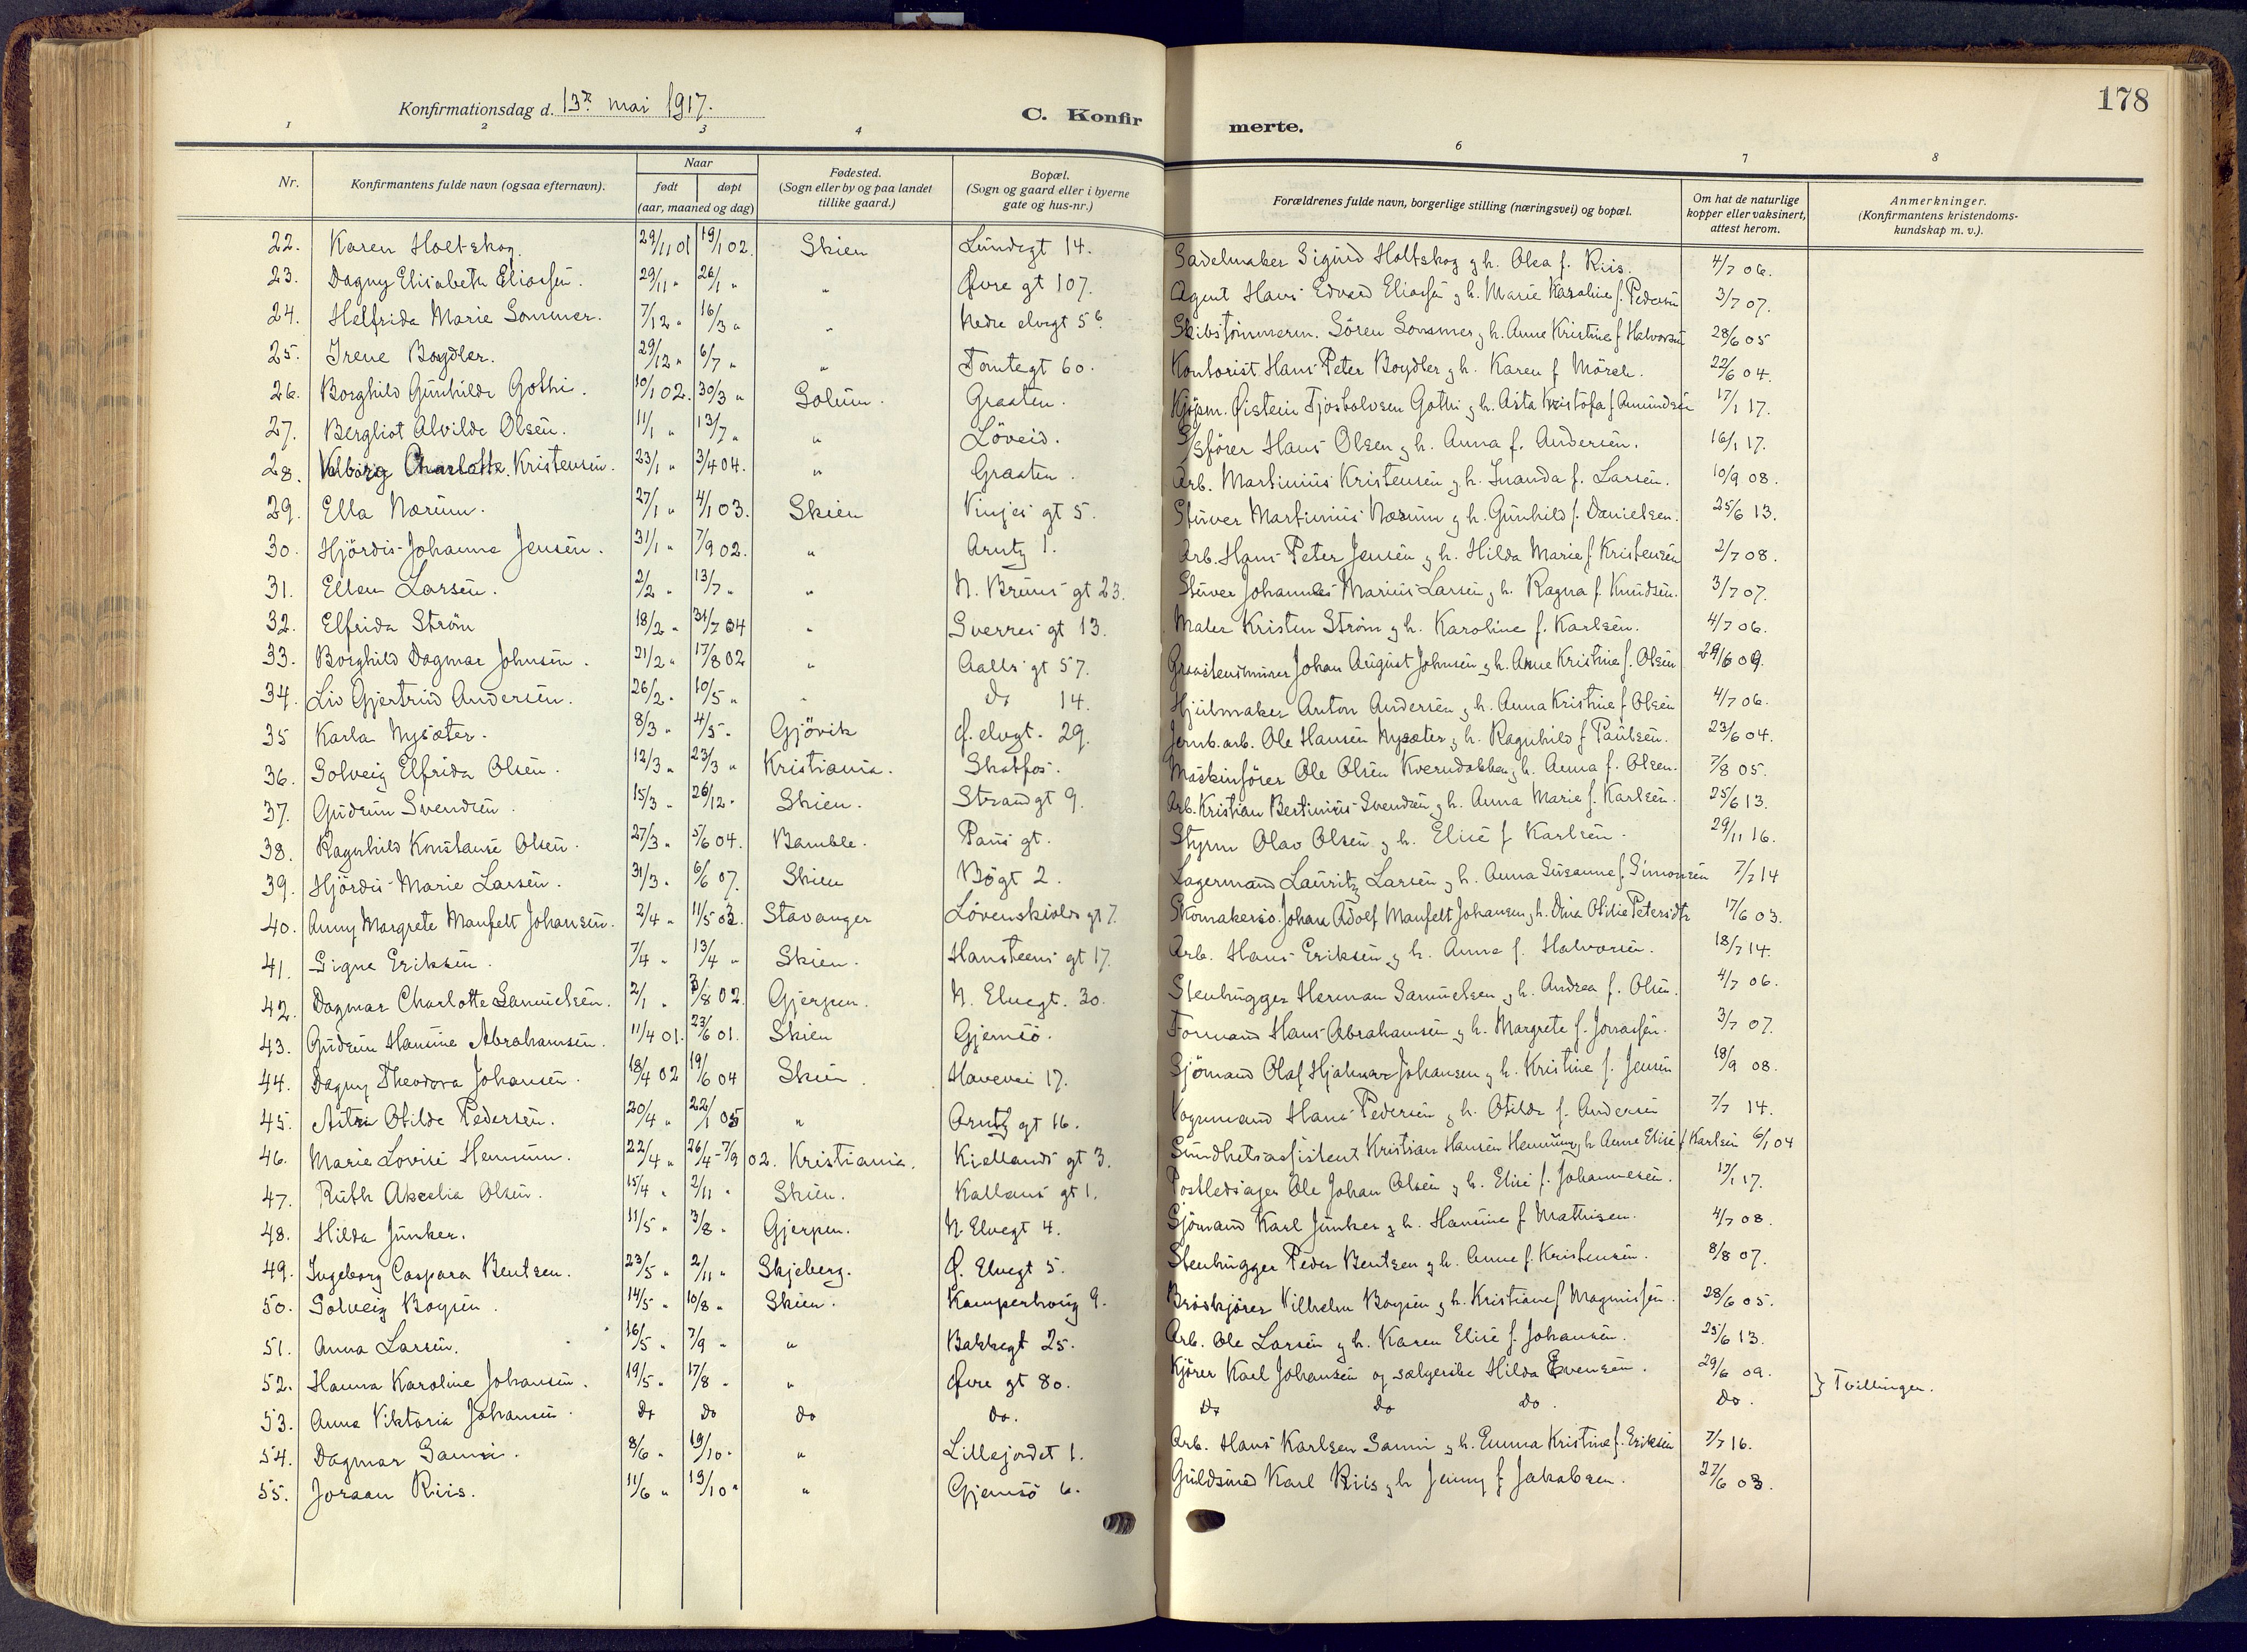 178
Konfirmationsdag d. 13de mai 1917.
C. Konfir merte.
1 2 3 4 6 7 8
Nr. Konfirmantens fulde navn (ogsaa efternavn). Naar født døpt (aar, maaned og dag) Fødested. (Sogn eller by og paa landet tillike gaard.) Bopæl. (Sogn og gaard eller i byerne gate og hus-nr.) Forældrenes fulde navn, borgerlige stilling (næringsvei) og bopæl. Om hat de naturlige kopper eller vaksinert, attest herom. Anmerkninger. (Konfirmantens kristendoms-kundskap m. v.).
22. Karen Holtskog. 29/11 01 19/1 02. Skien Lundegt 14. Sadelmaker Sigurd Holtskog g h. Olea f. Riis. 4/7 06.
23. Dagny Elisabeth Eliassen. 29/11 " 26/1 " " Øvre gt 107. Agent Hans Edvard Eliassen g h. Marie Karoline f. Pedersen 3/7 07.
24. Helfrida Marie Sommer. 7/12 " 16/3 " " Nedre elvegt 5b. Skibstømmerm. Sören Sommer g h. Anne Kristine f Halvorsen 28/6 05
25. Irene Boydler. 29/12 " 6/7 " " Tomtegt 60. Kontorist Hans Peter Boydler g h. Karen f Mörch. 22/6 04.
26. Borghild Gunhilde Gothi. 10/1 02. 30/3 " Solum. Graaten. Kjöpm. Øistein Tjostolvsen Gothi g h. Asta Kristofa f Amundsen 17/1 17.
27. Bergliot Alvilde Olsen. 11/1 " 13/7 " " Löveid. S/sförer Hans Olsen g h. Anna f. Andersen. 16/1 17.
28. Valborg Charlotte Kristensen. 23/1 " 3/4 04. " Graaten. Arb. Martinius Kristensen g h. Inanda f. Larsen. 10/9 08.
29. Ella Nærum. 27/1 " 4/1 03. Skien Vinjes gt 5. Stuver Martinius Nærum g h. Gunhild f. Danielsen. 25/6 13.
30. Hjördis Johanne Jensen. 31/1 " 7/9 02. " Arntz 1. Arb. Hans Peter Jensen g h. Hilda Marie f Kristensen 2/7 08.
31. Ellen Larsen. 2/2 " 13/7 " " N. Bruns gt 23. Stuver Johannes Marius Larsen g h. Ragna f. Knudsen. 3/7 07.
32. Elfrida Ström 18/2 " 31/7 04 " Sverres gt 13. Maler Kristen Ström g h. Karoline f. Karlsen. 4/7 06.
33. Borghild Dagmar Johnsen. 21/2 " 17/8 02 " Aalls gt 57. Graastensmurer Johan August Johnsen g h. Anne Kristine f. Olsen 29/6 09.
34. Liv Gjertrud Andersen. 26/2 " 10/5 " " do 14. Hjulmaker Anton Andersen g h. Anna Kristine f Olsen 4/7 06.
35 Karla Nysæter. 8/3 " 4/5 " Gjövik Ø. elvgt. 29. Jernb. arb. Ole Hansen Nysæter g h. Ragnhild f Paulsen. 23/6 04.
36. Solveig Elfrida Olsen. 12/3 " 23/3 " Kristiania. Skotfos. Maskinförer Ole Olsen Kverndokken g h. Anna f. Olsen. 7/8 05.
37. Gudrun Svendsen. 15/3 " 26/12 " Skien. Strandgt 9. Arb. Kristian Bertinius Svendsen g h. Anna Marie f. Karlsen. 25/6 13.
38. Ragnhild Konstanse Olsen. 27/3 " 5/6 04. Bamble. Paus gt. Styrm Olav Olsen g h. Elise f. Karlsen. 29/11 16.
39. Hjördis Marie Larsen. 31/3 " 6/6 07. Skien Bögt 2. Lagermand Lauritz Larsen g h. Anna Susanne f. Simonsen 7/7 14
40. Anny Margrete Manfelt Johansen. 2/4 " 11/5 02. Stavanger Lövenskiolds gt 7. Skomakersv. Johan Adolf Manfelt Johansen g h. Dina Otilie Petersdtr 17/6 03.
41. Signe Eriksen. 7/4 " 13/4 " Skien. Hansteens gt 17. Arb. Hans Eriksen g h. Anne f. Halvorsen. 18/7 14.
42. Dagmar Charlotte Samuelsen. 2/1 " 3/8 02. Gjerpen. N. Elvegt. 30. Stenhugger Herman Samuelsen g h. Andrea f. Olsen. 4/7 06.
43. Gudrun Hansine Abrahamsen. 11/4 01. 23/6 01. Skien Gjemsö. Formand Hans Abrahamsen g h. Margrete f. Jonassen. 3/7 07.
44. Dagny Theodora Johansen. 18/4 02 19/6 04 Skien. Havevei 17. Sjömand Olaf Hjalmar Johansen g h. Kristine f. Jensen 18/9 08.
45. Astri Otilde Pedersen. 20/4 " 22/1 05 " Arntz gt 16. Vognmand Hans Pedersen g h. Otilde f. Andersen 7/7 14.
46. Marie Lovise Hennum. 22/4 " 26/4 - 7/9 02. Kristiania. Kiellands gt 3. Sundhetsassistent Kristian Hansen Hennum g h Anne Elise f Karlsen 6/1 04
47. Ruth Akselia Olsen. 15/4 " 2/11 " Skien. Kallans gt 1. Postledsager Ole Johan Olsen g h. Elise f. Johannesen. 17/1 17.
48. Hilda Junker. 11/5 " 3/8 " Gjerpen. N. Elvegt 4. Sjömand Karl Junker g h. Hansine f Mathisen. 4/7 08.
49. Ingeborg Caspara Bentsen. 23/5 " 2/11 " Skjeberg. Ø. Elvegt 5. Stenhugger Peder Bentsen g h. Anne f. Kristensen. 8/8 07.
50. Solveig Boysen. 14/5 " 10/8 " Skien. Kamperhoug 9. Vilhelm Boysen g h. Kristiane f Magnussen. 28/6 05.
51. Anna Larsen. 16/5 " 7/9 " " Bakkegt 25. Arb. Ole Larsen g h. Karen Elise f. Johansen. 25/6 13.
52. Hanna Karoline Johansen. 19/5 " 17/8 " " Øvre gt 80. Kjörer Karl Johansen og sælgerske Hilda Evensen. 29/6 09. } Tvillinger.
53. Anna Viktoria Johansen. do do do do. do do do. do.
54. Dagmar Sanni. 8/6 " 19/10 " " Lillejordet 1. Arb. Hans Karlsen Sanni g h. Emma Kristine f. Eriksen 7/7 16.
55. Joraan Riis. 11/6 " 19/10 " " Gjemsö 6. Guldsmed Karl Riis g h Jenny f Jakobsen. 27/6 03.